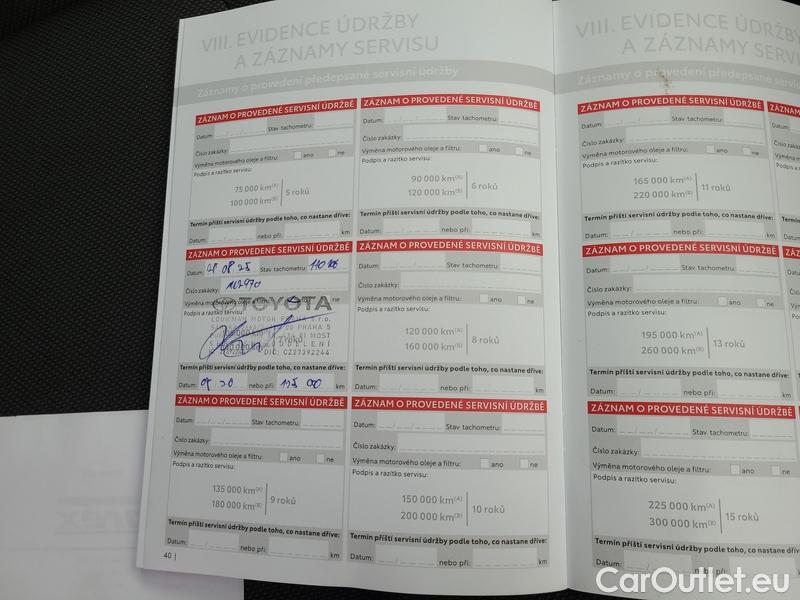 VIII. EVIDENCE ÚDRŽBY
A ZÁZNAMY SERVISU
Záznamy o provedení předepsané servisní údržby
ZÁZNAM O PROVEDENÉ SERVISNÍ ÚDRŽBĚ
Datum: Stav tachometru:
Číslo zakázky:
Výměna motorového oleje a filtru: ano ne
Podpis a razítko servisu:
75 000 km(A)
100 000 km(B)
5 roků
Termín příští servisní údržby podle toho, co nastane dříve:
Datum: nebo při: km
ZÁZNAM O PROVEDENÉ SERVISNÍ ÚDRŽBĚ
Datum: Stav tachometru:
Číslo zakázky:
Výměna motorového oleje a filtru: ano ne
Podpis a razítko servisu:
90 000 km(A)
120 000 km(B)
6 roků
Termín příští servisní údržby podle toho, co nastane dříve:
Datum: nebo při: km
ZÁZNAM O PROVEDENÉ SERVISNÍ ÚDRŽBĚ
Datum: 08 25 Stav tachometru:
Číslo zakázky:
TOYOTA
7 roků
DIČ: CZ27392244
Termín příští servisní údržby podle toho, co nastane dříve:
Datum: nebo při: 000 km
ZÁZNAM O PROVEDENÉ SERVISNÍ ÚDRŽBĚ
Datum: Stav tachometru:
Číslo zakázky:
Výměna motorového oleje a filtru: ano ne
Podpis a razítko servisu:
120 000 km(A)
160 000 km(B)
8 roků
Termín příští servisní údržby podle toho, co nastane dříve:
Datum: nebo při: km
ZÁZNAM O PROVEDENÉ SERVISNÍ ÚDRŽBĚ
Datum: Stav tachometru:
Číslo zakázky:
Výměna motorového oleje a filtru: ano ne
Podpis a razítko servisu:
135 000 km(A)
180 000 km(B)
9 roků
Termín příští servisní údržby podle toho, co nastane dříve:
Datum: nebo při: km
ZÁZNAM O PROVEDENÉ SERVISNÍ ÚDRŽBĚ
Datum: Stav tachometru:
Číslo zakázky:
Výměna motorového oleje a filtru: ano ne
Podpis a razítko servisu:
150 000 km(A)
200 000 km(B)
10 roků
Termín příští servisní údržby podle toho, co nastane dříve:
Datum: nebo při: km
40 |
VIII. EVIDENCE ÚDRŽBY
A ZÁZNAMY
Záznamy o provedení předepsané
ZÁZNAM O PROVEDENÉ SERVISNÍ ÚDRŽBĚ
Datum: Stav tachometru:
Číslo zakázky:
Výměna motorového oleje a filtru: ano ne
Podpis a razítko servisu:
165 000 km(A)
220 000 km(B)
11 roků
Termín příští servisní údržby podle toho, co nastane dříve:
Datum: nebo při: km
ZÁZNAM O PROVEDENÉ SERVISNÍ ÚDRŽBĚ
Datum: Stav tachometru:
Číslo zakázky:
Výměna motorového oleje a filtru: ano ne
Podpis a razítko servisu:
195 000 km(A)
260 000 km(B)
13 roků
Termín příští servisní údržby podle toho, co nastane dříve:
Datum: nebo při: km
ZÁZNAM O PROVEDENÉ SERVISNÍ ÚDRŽBĚ
Datum: Stav tachometru:
Číslo zakázky:
Výměna motorového oleje a filtru: ano ne
Podpis a razítko servisu:
225 000 km(A)
300 000 km(B)
15 roků
Termín příští servisní údržby podle toho, co nastane dříve:
Datum:
CarOutlet.eu